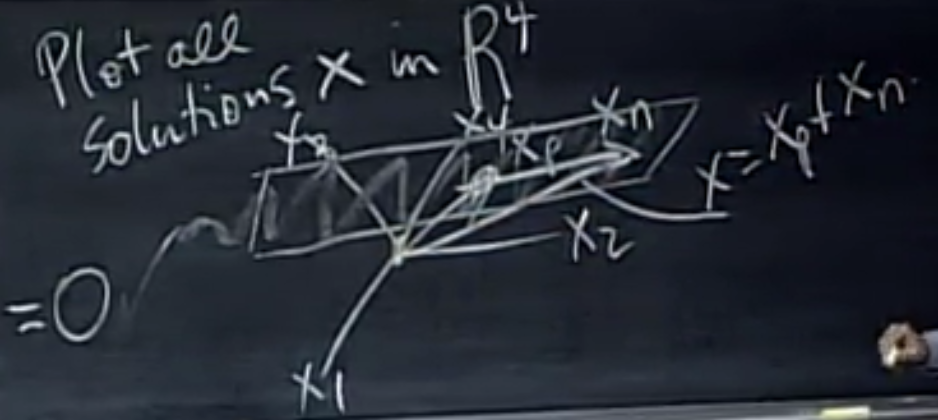 Plot all
solutions x in R⁴
x3
x4
xp
xn
x = xp + xn
x2
=0
x1